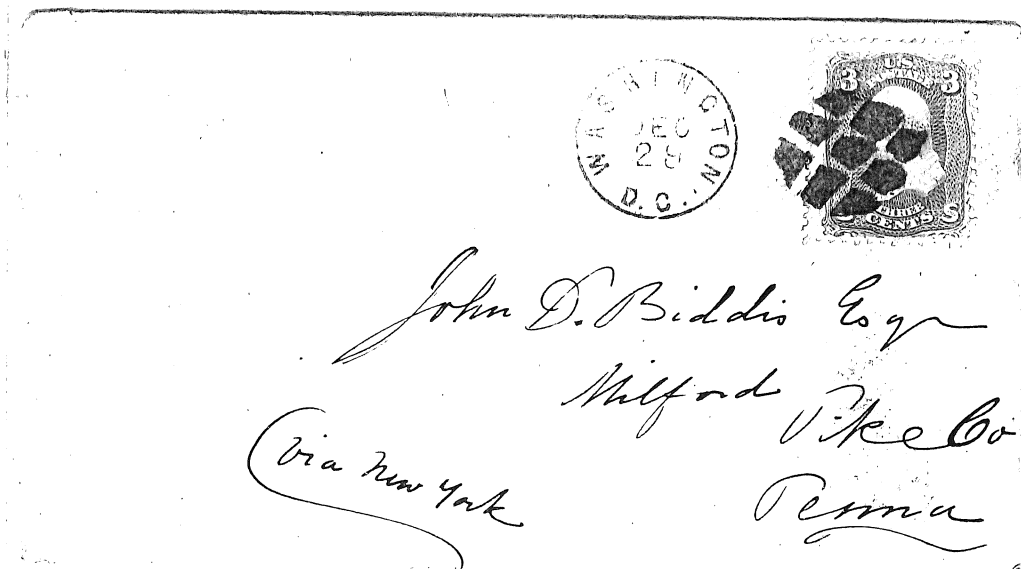 WASHINGTON D.C.
DEC
28
U.S. POSTAGE
3 3
CENTS
John D. Biddis Esqr
Milford
Pike Co
Penna
via New York